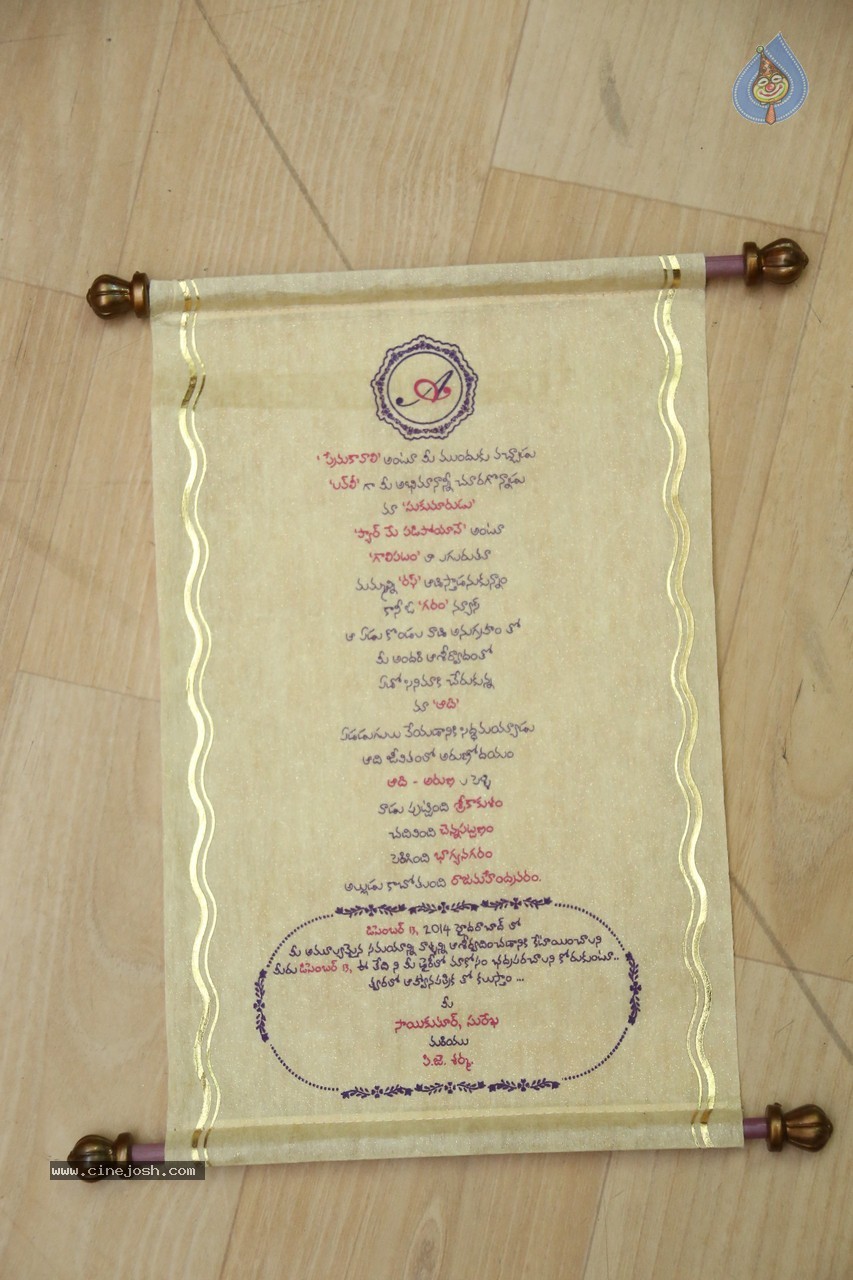 A
'ప్రేమకావాలి' అంటూ మీ ముందుకు వచ్చాడు
'లవ్‌లీ' గా మీ అభిమానాన్నీ చూరగొన్నాడు
మా 'సుకుమారుడు'
'ప్యార్ మే పడిపోయానే' అంటూ
'గాలిపటం' లా ఎగురుతూ
మమ్మల్ని 'రఫ్' ఆడిస్తాడనుకున్నాం
కానీ ఓ 'గరం' న్యూస్
ఆ ఏడు కొండల వాడి అనుగ్రహం తో
మీ అందరి ఆశీర్వాదంతో
ఏటో సినిమాకి చేరుకున్న
మా 'ఆది'
ఏడడుగులు వేయడానికి సిద్ధమయ్యాడు
ఆది జీవితంలో అరుణోదయం
ఆది - అరుణ ల పెళ్ళి
వాడు పుట్టింది శ్రీకాకుళం
చదివింది చెన్నపట్టణం
పెరిగింది భాగ్యనగరం
అల్లుడు కాబోతుంది రాజమహేంద్రవరం.
డిసెంబర్ 13, 2014 హైదరాబాద్ లో
మీ అమూల్యమైన సమయాన్ని వాళ్ళని ఆశీర్వదించడానికి కేటాయించాలని
మీరు డిసెంబర్ 13, ఈ తేది ని మీ డైరీలో మాకోసం భద్రపరచాలని కోరుకుంటూ..
త్వరలో ఆహ్వానపత్రిక తో కలుస్తాం ...
మీ
సాయికుమార్, సురేఖ
మరియు
పి.జె. శర్మ.
www.cinejosh.com